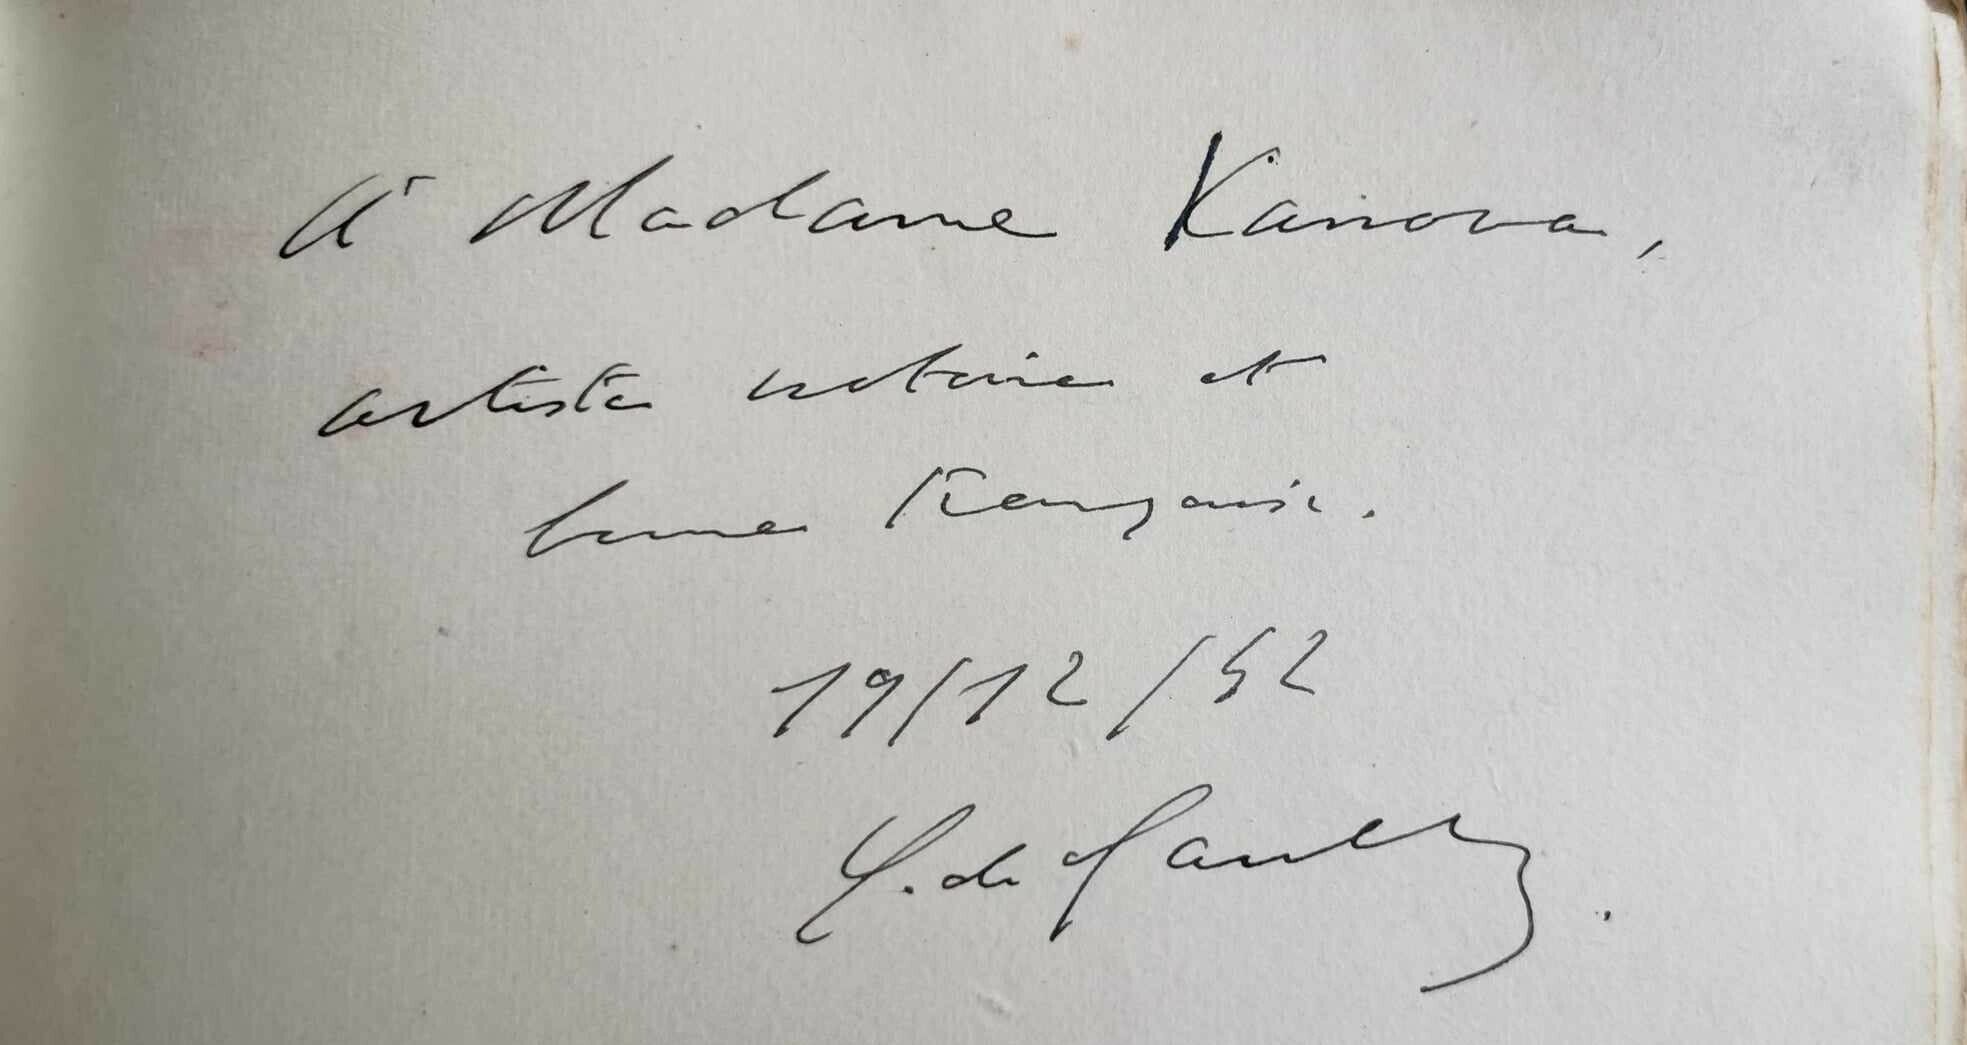 À Madame Kanova,
artiste notoire et
bonne Française.
19/12/52
C. de Gaulle.